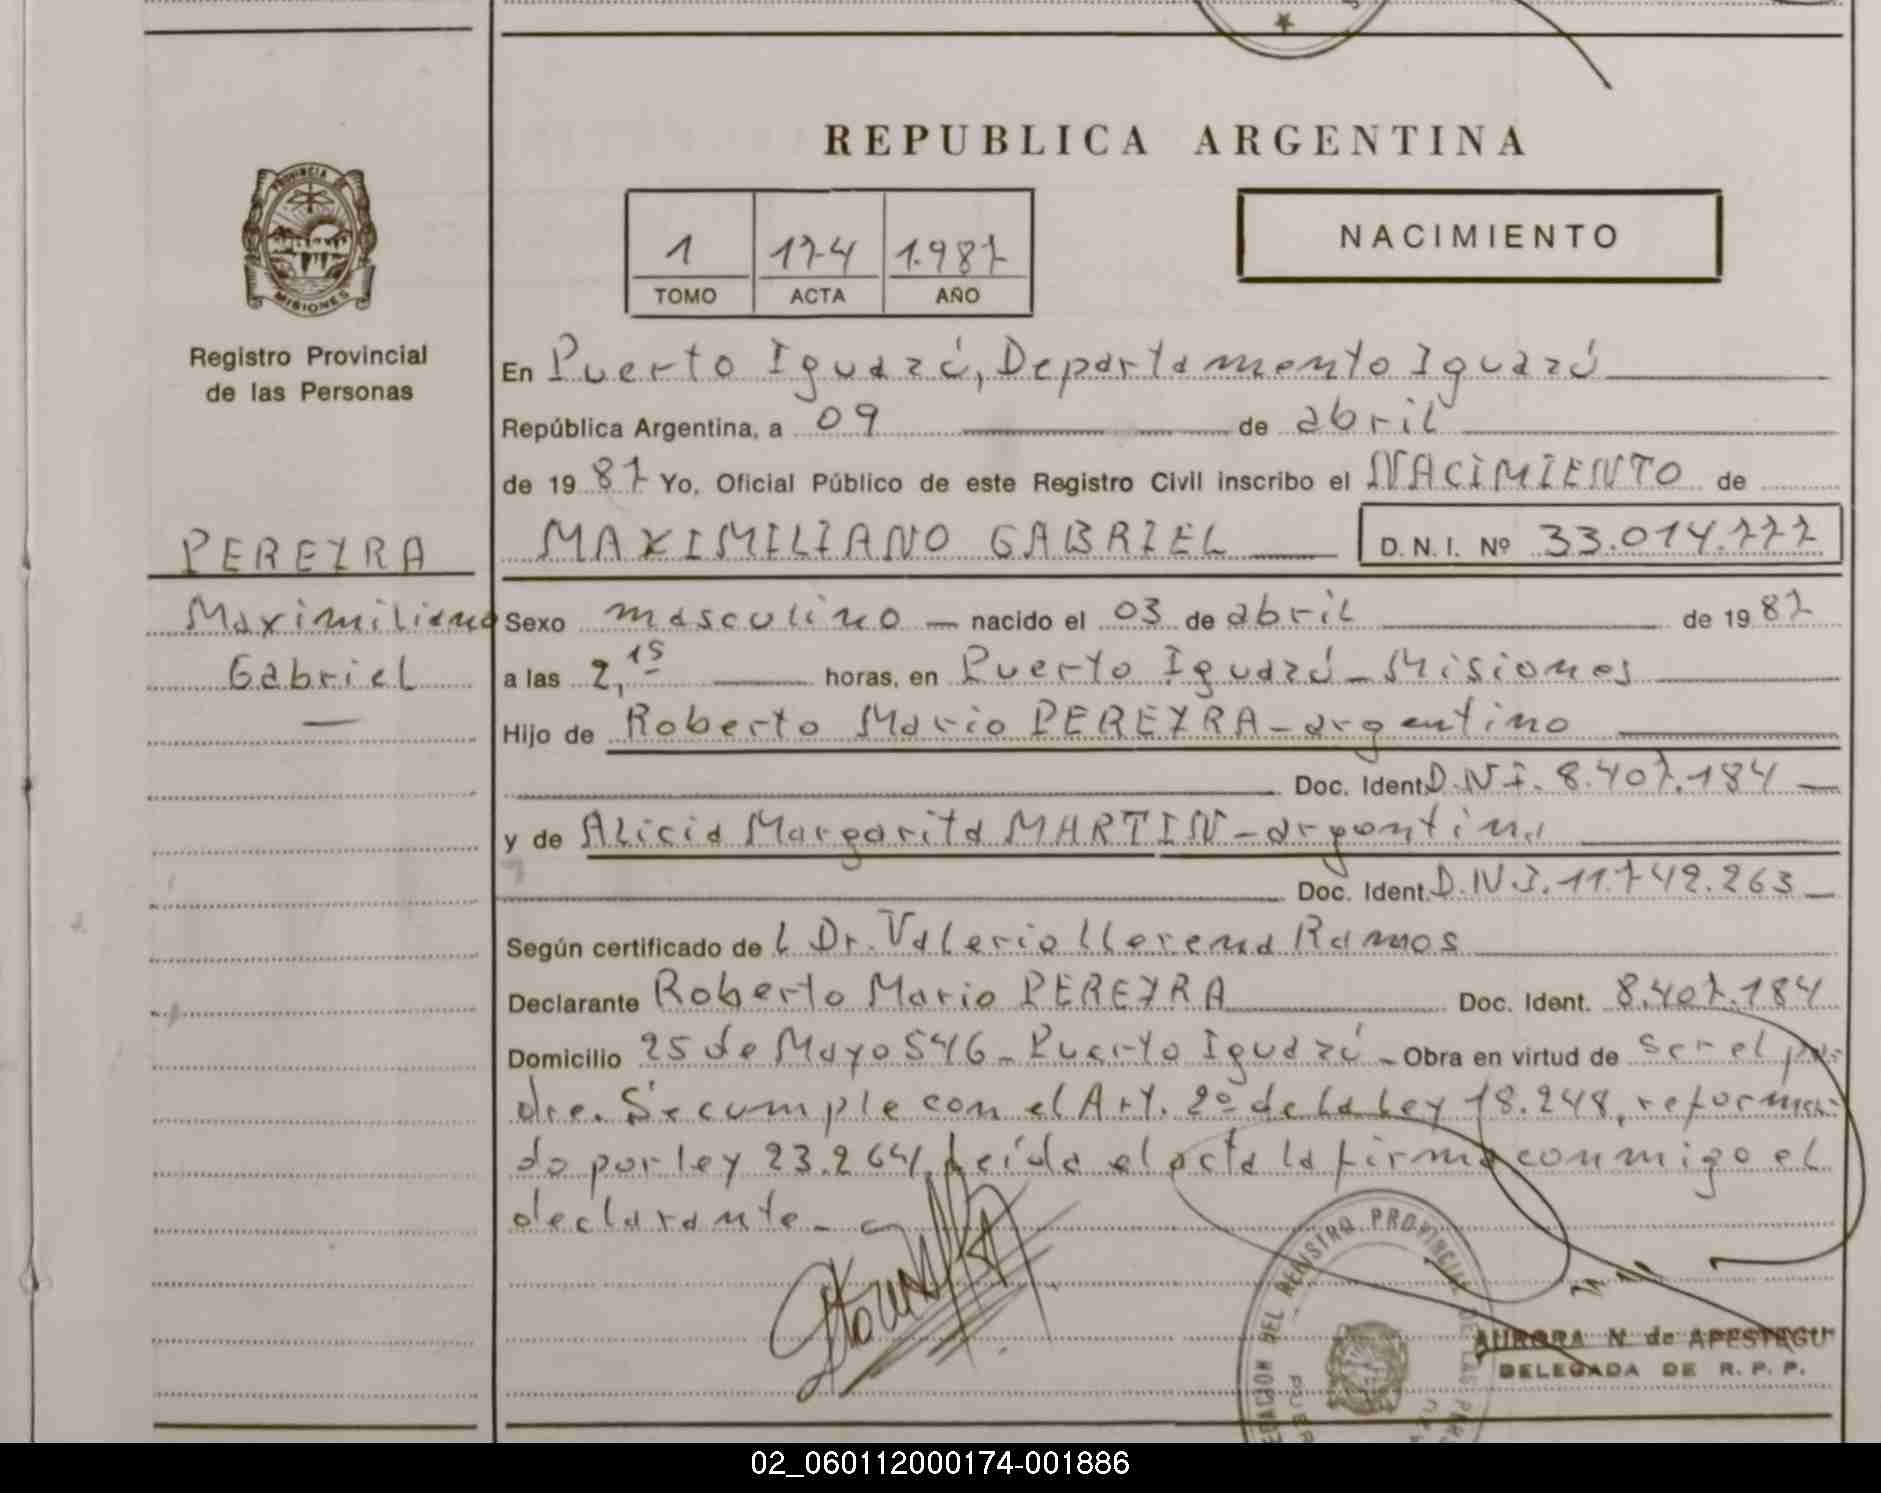 REPUBLICA ARGENTINA
PROVINCIA DE
MISIONES
Registro Provincial
de las Personas
1 174 1.987
TOMO ACTA AÑO
NACIMIENTO
En Puerto Iguazú, Departamento Iguazú
República Argentina, a 09 de abril
de 1987 Yo, Oficial Público de este Registro Civil inscribo el NACIMIENTO de
PEREYRA
Maximiliano
Gabriel
MAXIMILIANO GABRIEL D.N.I. Nº 33.014.777
Sexo masculino nacido el 03 de abril de 1987
a las 2,15 horas, en Puerto Iguazú - Misiones
Hijo de Roberto Mario PEREYRA - argentino
Doc. Ident. D.N.I. 8.407.184
y de Alicia Margarita MARTIN - argentina
Doc. Ident. D.N.I. 11.742.263
Según certificado de L Dr. Valerio Llerena Ramos
Declarante Roberto Mario PEREYRA Doc. Ident. 8.407.184
Domicilio 25 de Mayo 546 - Puerto Iguazú - Obra en virtud de ser el pa-
dre. Se cumple con el Art. 2º de la Ley 18.248, reforma-
do por ley 23.264. Leída el acta la firma conmigo el
declarante -
REGISTRO PROVINCIAL DE LAS
AURORA N de APESTEGUI
DELEGADA DE R. P. P.
02_060112000174-001886